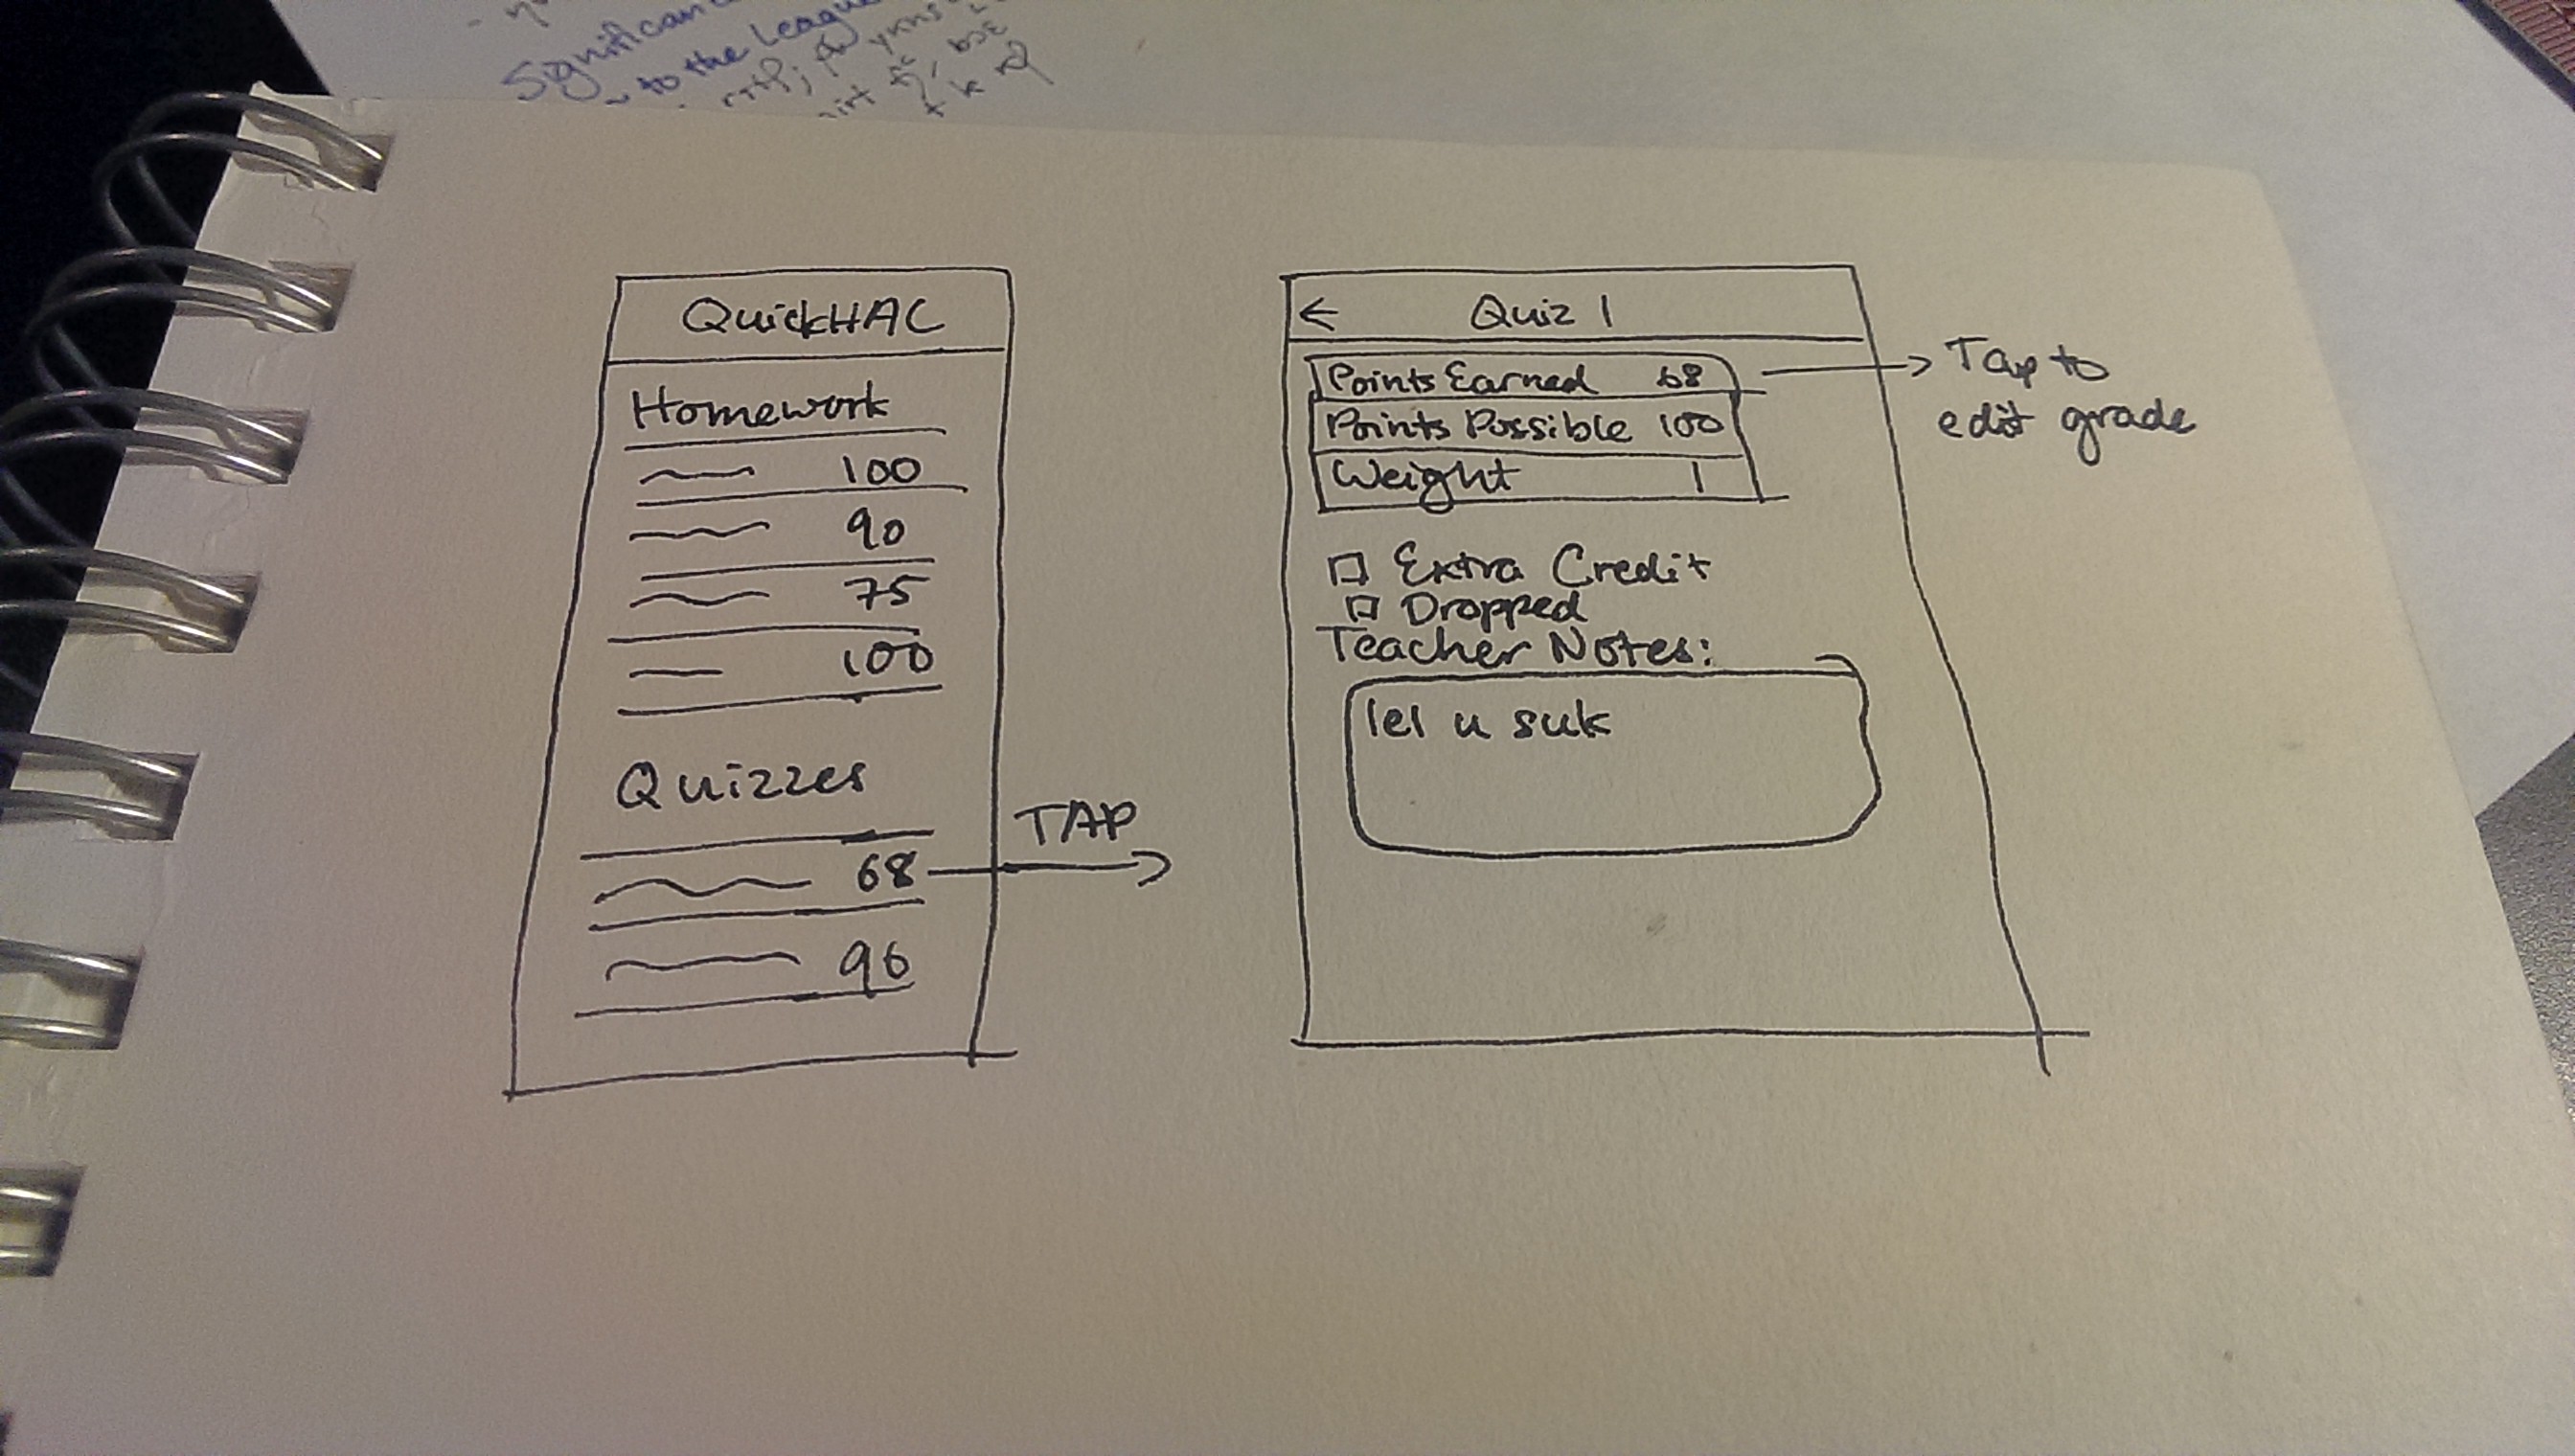 Significan
to the League
QuickHAC
Homework
100
90
75
100
Quizzes
68
96
TAP
← Quiz 1
Points Earned 68
Points Possible 100
Weight 1
Extra Credit
Dropped
Teacher Notes:
lel u suk
Tap to
edit grade